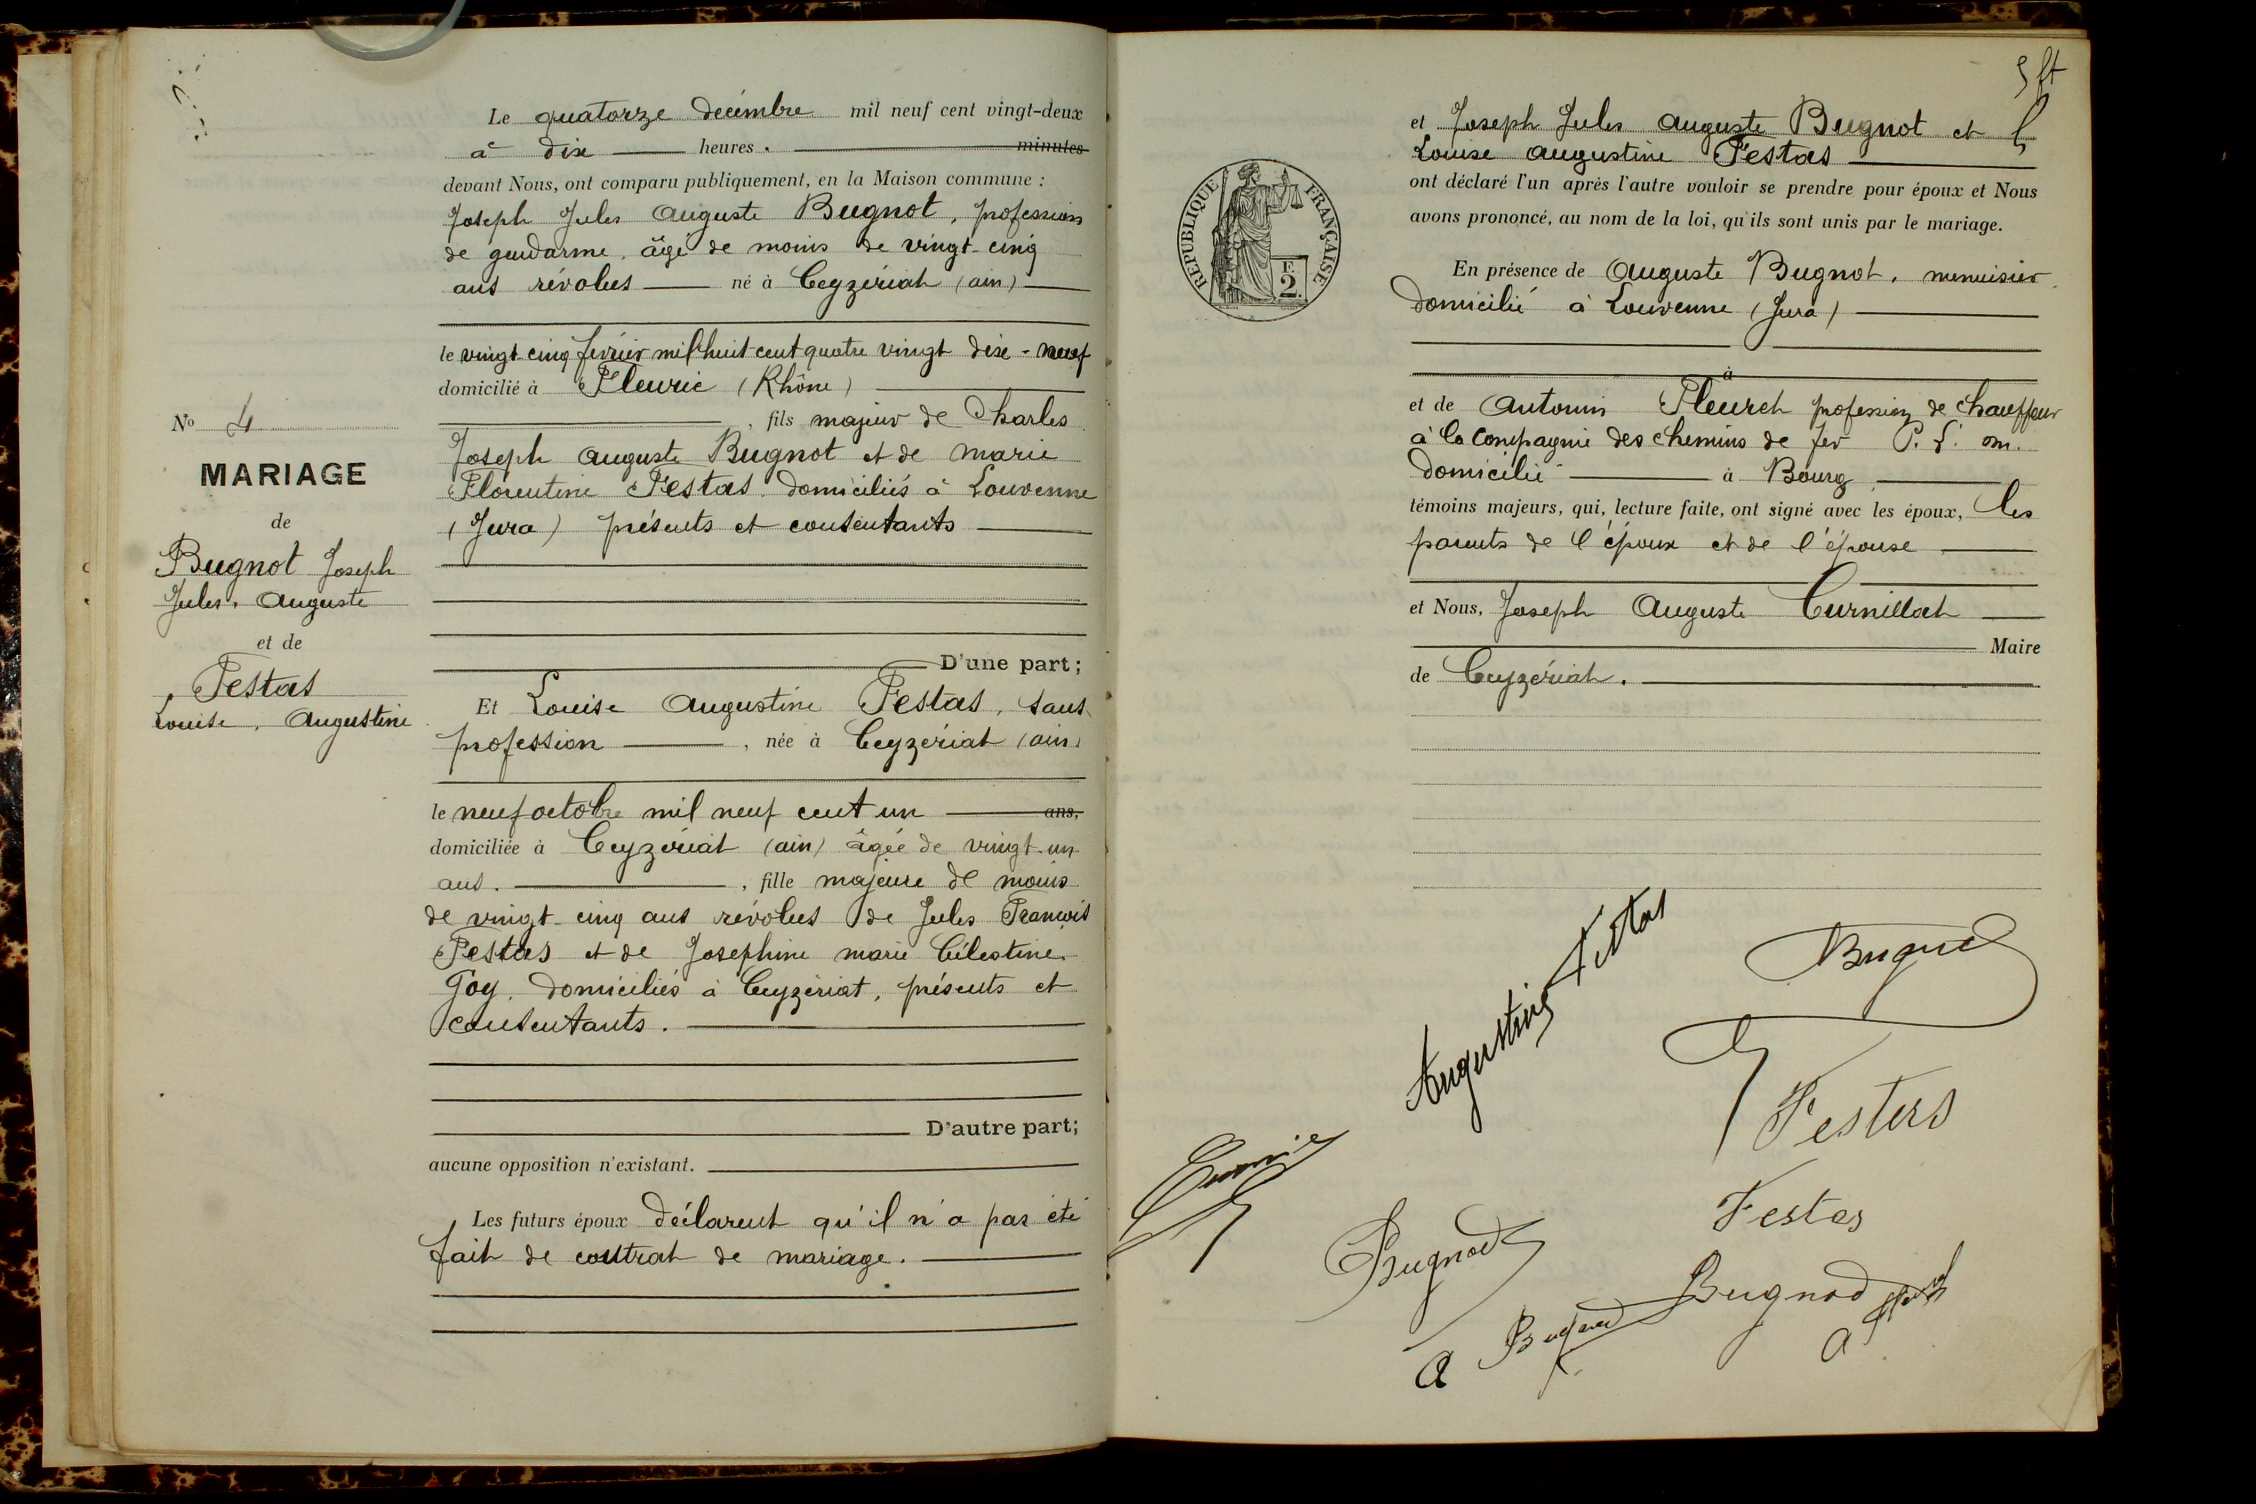 Le quatorze décembre mil neuf cent vingt-deux
à dix heures. minutes
devant Nous, ont comparu publiquement, en la Maison commune :
Joseph Jules Auguste Bugnot, profession
de gendarme, âgé de moins de vingt-cinq
ans révolus né à Ceyzériat (ain)
le vingt-cinq février mil huit cent quatre vingt dix-neuf
domicilié à Fleurie (Rhône)
, fils majeur de Charles
Joseph Auguste Bugnot et de marie
Florentine Festas domiciliés à Louvenne
(Jura) présents et consentants
D'une part;
Et Louise Augustine Festas, sans
profession , née à Ceyzériat (ain)
le neuf octobre mil neuf cent un ans,
domiciliée à Ceyzériat (ain) âgée de vingt-un
ans. , fille majeure de moins
de vingt-cinq ans révolus de Jules François
Festas et de Josephine marie Célestine
Goy, domiciliés à Ceyzériat, présents et
consentants.
D'autre part;
aucune opposition n'existant.
Les futurs époux déclarent qu'il n'a pas été
fait de contrat de mariage.
No 4
MARIAGE
de
Bugnot Joseph
Jules, Auguste
et de
Festas
Louise, Augustine
RÉPUBLIQUE FRANÇAISE
F.
2.
et Joseph Jules Auguste Bugnot et
Louise Augustine Festas
ont déclaré l'un après l'autre vouloir se prendre pour époux et Nous
avons prononcé, au nom de la loi, qu'ils sont unis par le mariage.
En présence de Auguste Bugnot, menuisier
domicilié à Louvenne (Jura)
à
et de Antonin Fleuret profession de chauffeur
à la Compagnie des chemins de fer P. L. m.
domicilié à Bourg
témoins majeurs, qui, lecture faite, ont signé avec les époux, les
parents de l'époux et de l'épouse
et Nous, Joseph Auguste Curnillat
Maire
de Ceyzériat.
Augustine Festas
Bugnot
Festas
Festas
Bugnod
Bugnod
A Bugnod
A